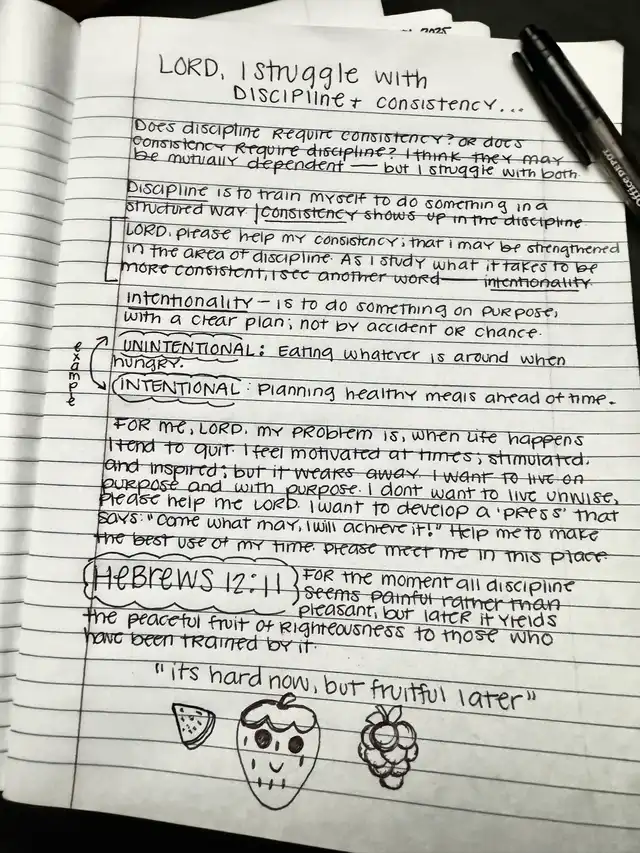 2025
LORD, I struggle with
DISCIPLINE + CONSISTENCY...
Does discipline require consistency? or does
consistency require discipline? I think they may
be mutually dependent — but I struggle with both.
Discipline is to train myself to do something in a
structured way | consistency shows up in the discipline
LORD, please help my consistency; that I may be strengthened
in the area of discipline. As I study what it takes to be
more consistent, I see another word — intentionality.
Intentionality - is to do something on purpose,
with a clear plan; not by accident or chance.
example
UNINTENTIONAL: Eating whatever is around when
hungry.
INTENTIONAL: Planning healthy meals ahead of time.
FOR me, LORD, my problem is, when life happens
I tend to quit. I feel motivated at times; stimulated,
and inspired; but it wears away. I want to live on
purpose and with purpose. I dont want to live unwise,
please help me LORD. I want to develop a 'press' that
says: "come what may, I will achieve it!" Help me to make
the best use of my time. please meet me in this place.
HEBREWS 12:11
FOR the moment all discipline
seems painful rather than
pleasant, but later it yields
the peaceful fruit of righteousness to those who
have been trained by it.
"its hard now, but fruitful later"
Office DEPOT